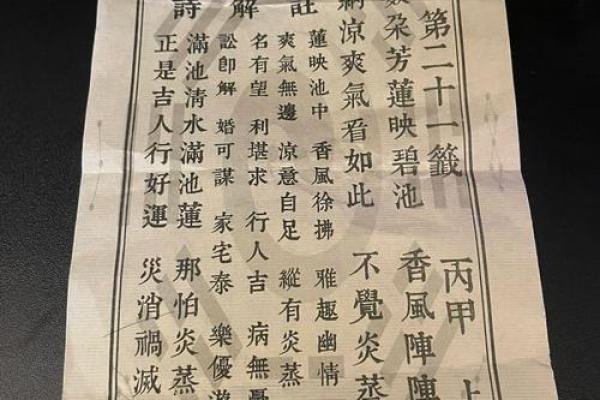 第二十一籤 丙甲 上
數朵芳蓮映碧池 香風陣陣
納涼爽氣看如此 不覺炎蒸
註
蓮映池中 香風徐拂 雅趣幽情
爽氣無邊 涼意自足 縱有炎蒸
解
名有望 利堪求 行人吉 病無憂
訟卽解 婚可謀 家宅泰 樂優游
詩
滿池清水滿池蓮 那怕炎蒸
正是吉人行好運 災消禍滅